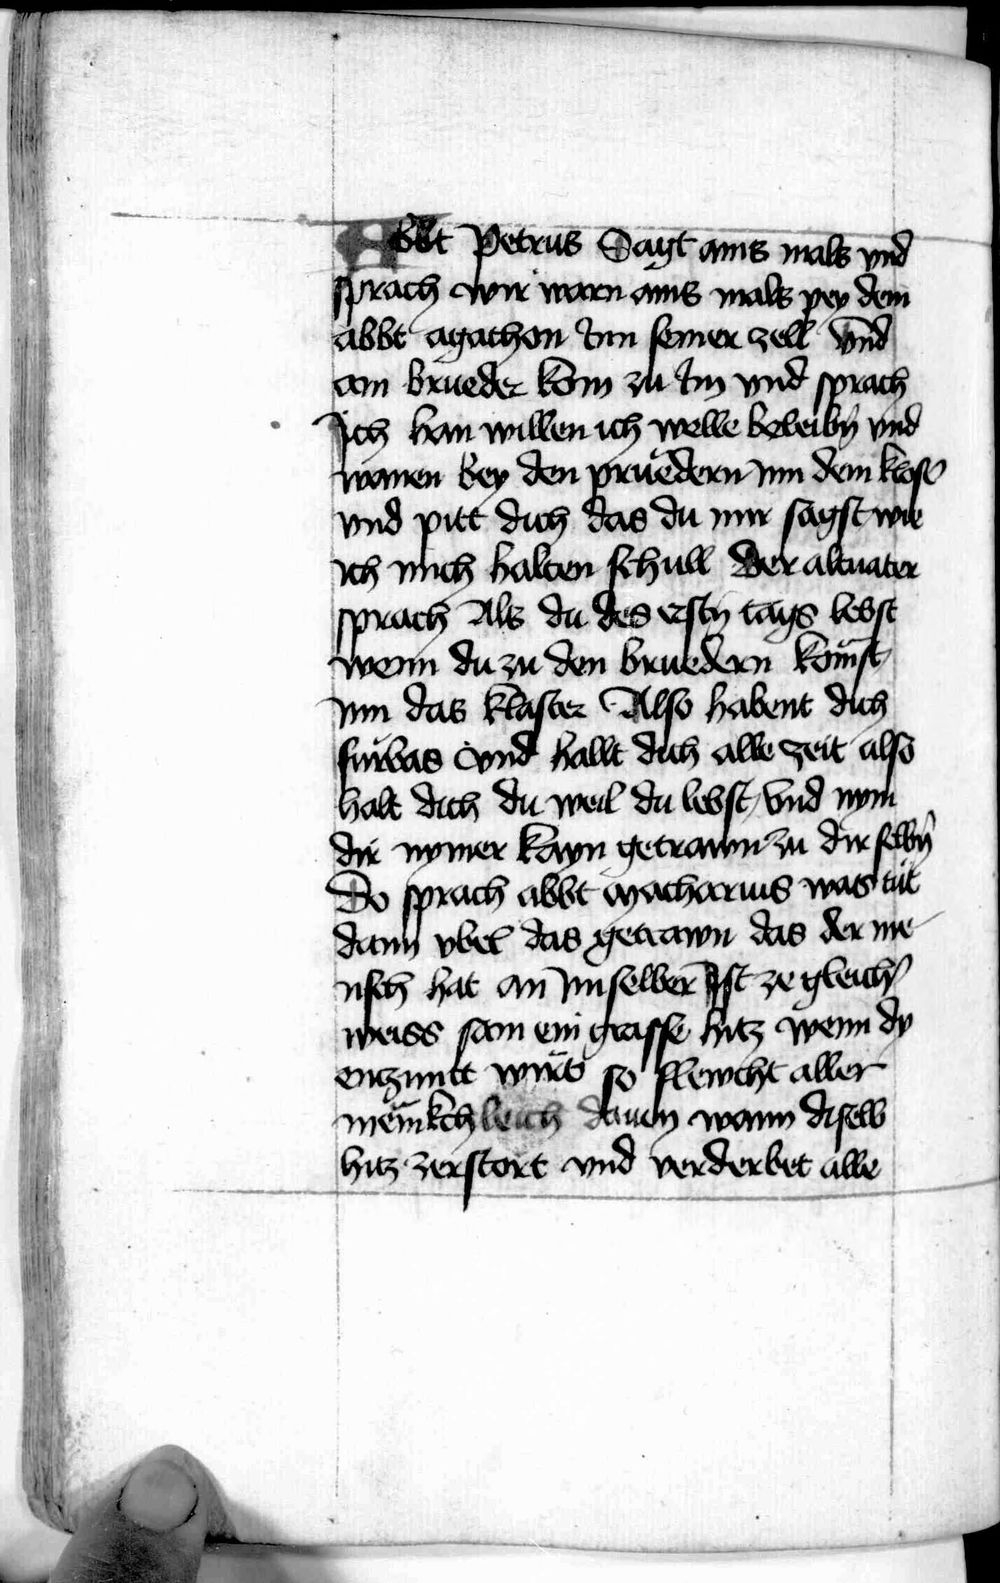 Abbt Petrus Sagt ains mals vnd
sprach wir warn ains mals pey dem
abbt agathon Inn seiner zell Vnd
ain brueder kom zu Im vnd sprach
Ich han willen ich welle beleibn̄ vnd
wanen bey den pruedern Inn dem kloster
vnd pitt dich das du mir sagst wie
ich mich halten schull Der altuater
sprach Als du des erstn̄ tags lebst
wenn du zu den bruedern komst
Inn das klaster Also habent dich
furbas Vnd hallt dich alle zeit also
halt dich du weil du lebst / Vnd nym
dir nymer kayn getrawn zu dir selbn̄
Do sprach abbt Macharius was tut
dann vbel das getrawn das der me-
nsch hat an Im selber Ist ze gleich
weiss sam ein grasse hitz wenn dy
enzuntt wirt so flewcht aller
menikchleich dauon wann diselb
hitz zerstort vnd verderbet alle